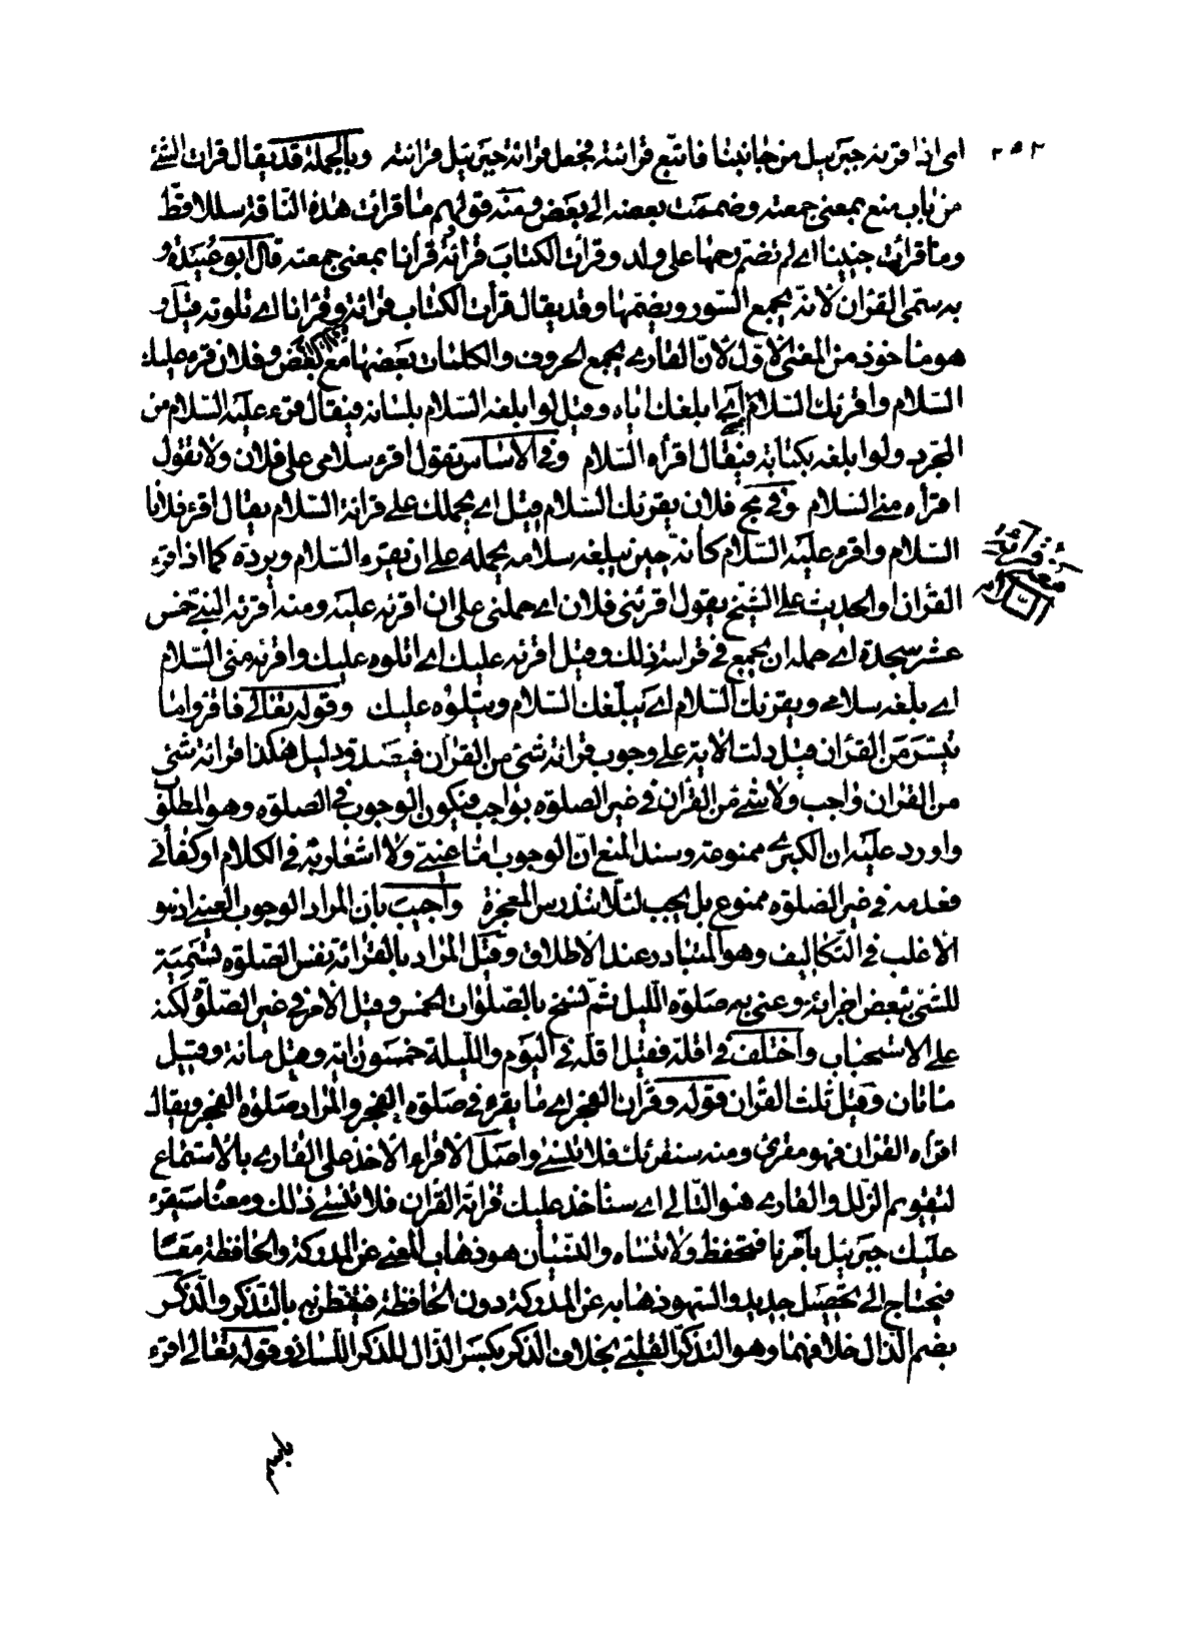 ٢٥٢
اى اذا قرئه جبرئيل من جانبنا فاتبع قرائته فجعل قرائة جبرئيل قرائته وبالجملة قد يقال قرات الشئ
من باب منع بمعنى جمعته وضممت بعضه الى بعض ومنه قولهم ما قرات هذه الناقة سلا قط
وما قرات جنينا اى لم تضم رحمها على ولد وقرأت الكتاب قرائة وقرأنا بمعنى جمعته قال ابو عبيدة و
به سمى القران لانه يجمع السور ويضمها وقد يقال قرأت الكتاب قرائة وقرانا اى تلوته قيل و
هو ماخوذ من المعنى الاول لان القارى يجمع الحروف والكلمات بعضها مع بعض وفلان قرء عليك
السلام واقرئك السلام اى ابلغك اياه وقيل لو ابلغه السلام بلسانه فيقال قرء عليه السلام من
المجرد ولو ابلغه بكتابة فيقال اقرأه السلام وفى الاساس تقول اقرء سلامى على فلان ولا تقول
اقرأه منى السلام وفى مج فلان يقرئك السلام قيل اى يحملك على قرائة السلام يقال اقرء فلانا
السلام واقرء عليه السلام كأنه حين يبلغه سلامه يحمله على ان يقرء السلام ويرده كما اذا قرء
القرأن او الحديث على الشيخ يقول اقرئنى فلان اى حملنى على ان اقرئه عليه ومنه اقرئه النبى خمس
عشر سجدة اى حمله ان يجمع فى قرائته ذلك وقيل اقرئه عليك اى اتلوه عليك واقرئه منى السلام
اى بلغه سلامى ويقرئك السلام اى يبلغك السلام ويتلوه عليك وقوله تعالى فاقرؤا ما
تيسر من القرأن قيل دلت الاية على وجوب قرائة شئ من القرأن فيصدق دليل هكذا قرائة شئ
من القران واجب ولا شئ من القرأن فى غير الصلوة بواجب فيكون الوجوب فى الصلوة وهو المطلوب
واورد عليه ان الكبرى ممنوعة وسند المنع ان الوجوب اما عينى ولا اشعار به فى الكلام او كفائى
فعدمه فى غير الصلوة ممنوع بل يجب لئلا تندرس المعجزة واجيب بان المراد الوجوب العينى اذ هو
الاغلب فى التكاليف وهو المتبادر عند الاطلاق وقيل المراد بالقرائة نفس الصلوة تسمية
للشئ ببعض اجزائه وعنى به صلوة الليل ثم نسخ بالصلوات الخمس وقيل الامر فى غير الصلوة لكنه
على الاستحباب واختلف فى اقله فقيل اقله فى اليوم والليلة خمسون اية وقيل مائة وقيل
مائتان وقيل ثلث القران قوله وقرأن الفجر اى ما يقرء فى صلوة الفجر والمراد صلوة الفجر ويقال
اقرأه القران فهو مقرئ ومنه سنقرئك فلا تنسى واصل الاقراء الاخذ على القارى بالاستماع
لتقويم الزلل والقارى هو التالى اى سناخذ عليك قرائة القرأن فلا تنسى ذلك ومعناه سيقرء
عليك جبرئيل بامرنا فتحفظ ولا تنساه والنسيان هو ذهاب المعنى عن المدركة والحافظة معا
فيحتاج الى تحصيل جديد والسهو ذهابه عن المدركة دون الحافظة فيتفطن به بالتذكر والذكر
بضم الذال خلافهما وهو التذكر القلبى بخلاف الذكر بكسر الذال للذكر اللسانى وقوله تعالى اقرء
باسم